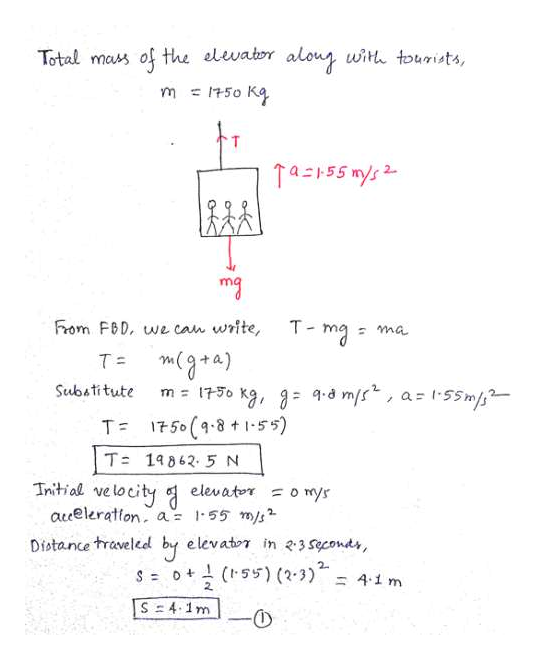 Total mass of the elevator along with tourists,
m = 1750 Kg
T
↑ a = 1.55 m/s²
mg
From FBD, we can write, T - mg = ma
T = m(g+a)
Substitute m = 1750 Kg, g = 9.8 m/s², a = 1.55 m/s²
T = 1750(9.8 + 1.55)
T = 19862.5 N
Initial velocity of elevator = 0 m/s
acceleration, a = 1.55 m/s²
Distance traveled by elevator in 2.3 seconds,
S = 0 + 1/2 (1.55) (2.3)² = 4.1 m
S = 4.1m —①